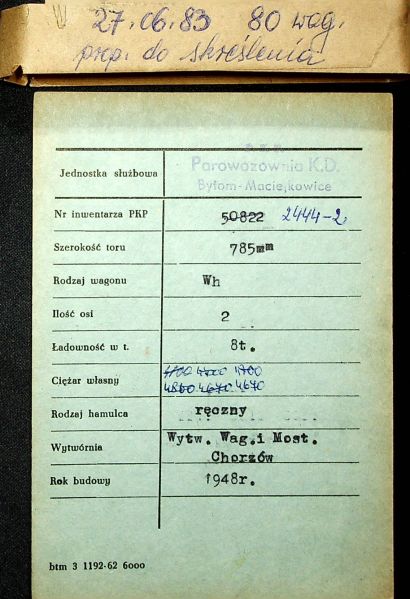 27.06.83 80 wag.
prp. do skreślenia
Jednostka służbowa
Parowozownia K.D.
Bytom-Maciejkowice
Nr inwentarza PKP 50822 2444-2
Szerokość toru 785mm
Rodzaj wagonu Wh
Ilość osi 2
Ładowność w t. 8t.
Ciężar własny
4670 4670
Rodzaj hamulca ręczny
Wytwórnia Wytw. Wag.i Most.
Chorzów
Rok budowy 1948r.
btm 3 1192-62 6000